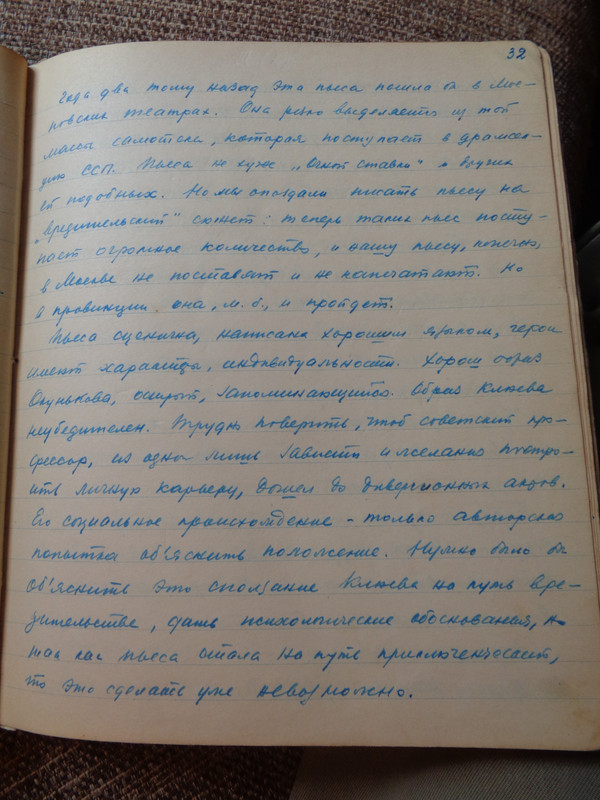 32
Года два тому назад эта пьеса пошла бы в Мос-
ковских театрах. Она резко выделяется из той
массы самотека, которая поступает в драмсек-
цию ССП. Пьеса не хуже „Очной ставки" и других
ей подобных. Но мы опоздали писать пьесу на
„вредительский" сюжет: теперь таких пьес посту-
пает огромное количество, и вашу пьесу, конечно,
в Москве не поставят и не напечатают. Но
в провинции она, м. б., и пройдет.
Пьеса сценична, написана хорошим языком, герои
имеют характеры, индивидуальности. Хорош образ
Окунькова, острый, запоминающийся. Образ Клюева
неубедителен. Трудно поверить, чтоб советский про-
фессор, из одной лишь зависти и желания постро-
ить личную карьеру, дошел до диверсионных актов.
Его социальное происхождение - только авторская
попытка об'яснить положение. Нужно было бы
об'яснить это сползание Клюева на путь вре-
дительства, дать психологические обоснования, а
так как пьеса стала на путь приключенческий,
то это сделать уже невозможно.